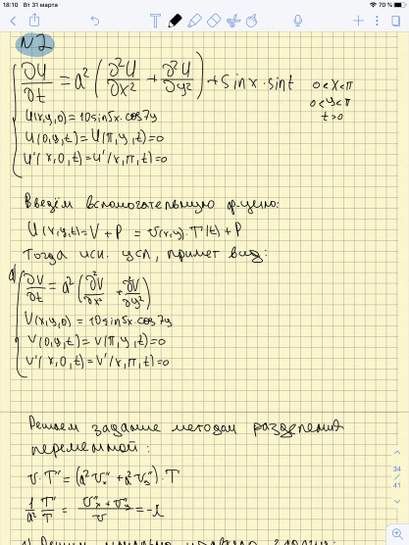 18:10 Вт 31 марта
70 %
N2
∂U/∂t = a² (∂²U/∂x² + ∂²U/∂y²) + sinx·sint
0<x<π
U(x,y,0) = 10sin5x·cos7y
0<y<π
U(0,y,t) = U(π,y,t)=0
t>0
U'(x,0,t) = U'(x,π,t)=0
Введём вспомогательную ф-цию:
U(x,y,t) = V + P = v(x,y)·T(t) + P
Тогда исх. усл, примет вид:
∂V/∂t = a² (∂²V/∂x² + ∂²V/∂y²)
V(x,y,0) = 10sin5x·cos7y
V(0,y,t) = V(π,y,t)=0
V'(x,0,t) = V'(x,π,t)=0
Решаем задание методом разделения
переменной:
34
41